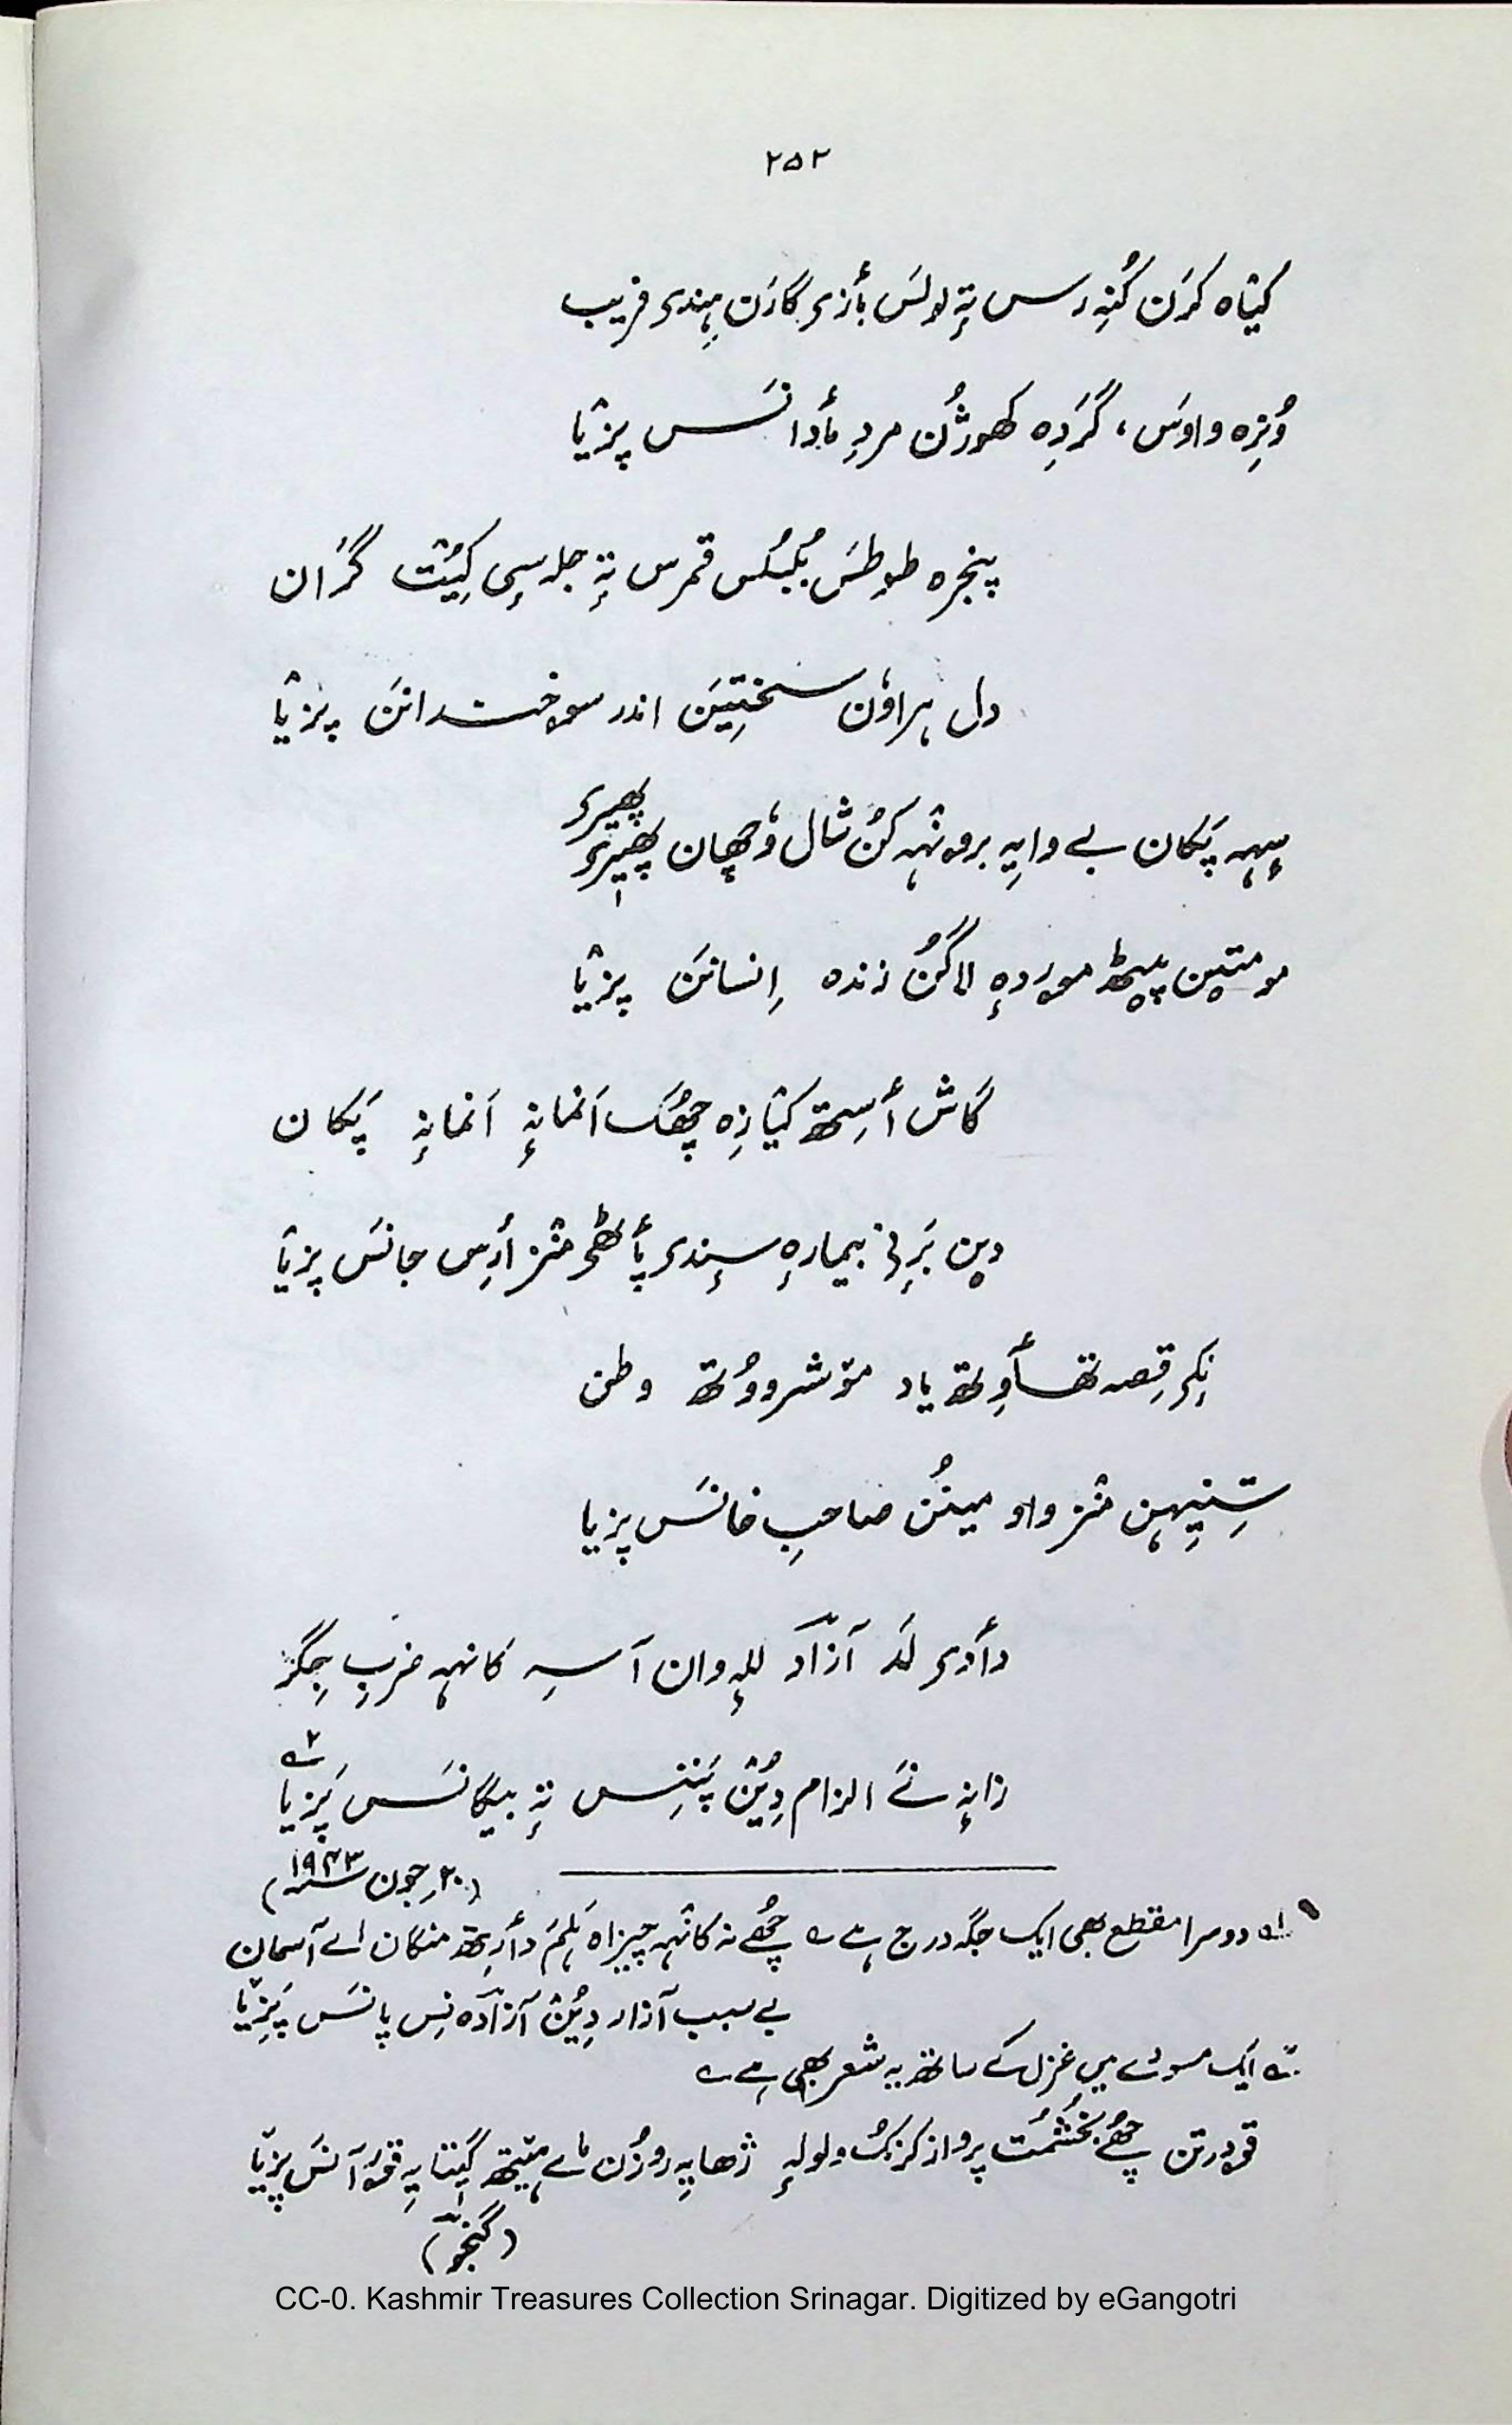 ۲۵۲
کیٛاہ کرَن کُنہِ رسس تہٕ لولَس بأزی گارَن ہِندی فریب
وُزِہ واوَس، گَردِہ کھوژُن مردِ مأدانَس پزیٛا
پنجرہ طوطَس بُلبُلس قمرس تہٕ جلہ سٕی کیُٛت گَران
دل ہراوُن سختِیَن اندر سوخت دانَن پزیٛا
سٕہہ پَکان بے وایہِ برونٛہہ کُن شال وُچھان پھیری پھیری
مومتیٖن پیٖٹھ موردہٕ لاگُن زندہ اِنسانَن پزیٛا
گاش أسِتھ کیٛازِہ چھُکھ اَنمانہٕ اَنمانہٕ پَکان
دۄن بَرٕنۍ بیمارہٕ سٕندی پأٹھی منٛز أرِس جانَس پزیٛا
نِکی قِصہ تھأوِتھ یاد مۆشروُوتھ وطن
شِنیِہن منٛز واو مینُن صاحبِ خانَس پزیا
دأدی لَد آزاد للہٕ وان آسہِ کانٛہہ ضربِ جِگر
زانہٕ نَے الزام دیُٛن پَننِس تہٕ بیگانَس پَزیا ؂۲
(۲۰؍جون ۱۹۴۳؁)
؂۱ دوسرا مقطع بھی ایک جگہ درج ہے ؎ چھُے نہ کانٛہہ چیزاہ ہَلَم دأرِتھ منگان اے آسمان
بے سبب آزار دیُٛن آزادہ نِس پانَس پَزیٛا
؂۲ ایک مسودے میں غزل کے ساتھ یہ شعر بھی ہے ؎
قۄدرتن چھُے بخُشمُت پرواز کرنُک ولولہٕ ژھایہِ روزُن مأے ہیٛتھ گیٖتایہِ قۄرآنَس پزیٛا
(گنجو)
CC-0. Kashmir Treasures Collection Srinagar. Digitized by eGangotri